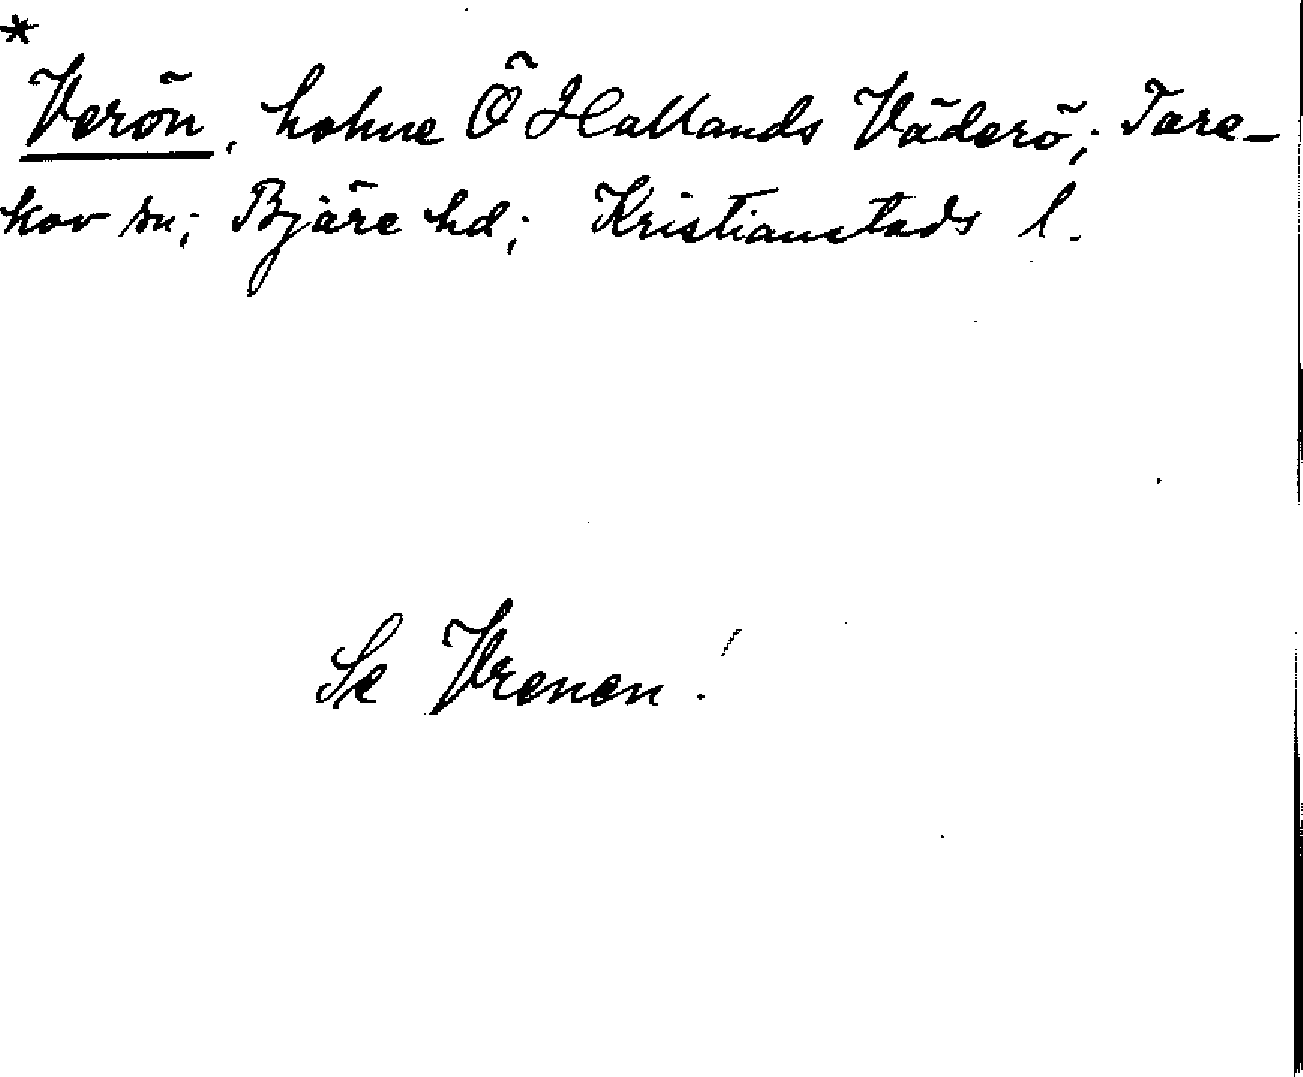 *
Verön, holme Ö Hallands Väderö; Tore-
kov sn; Bjäre hd; Kristianstads l.
Se Vrenen!